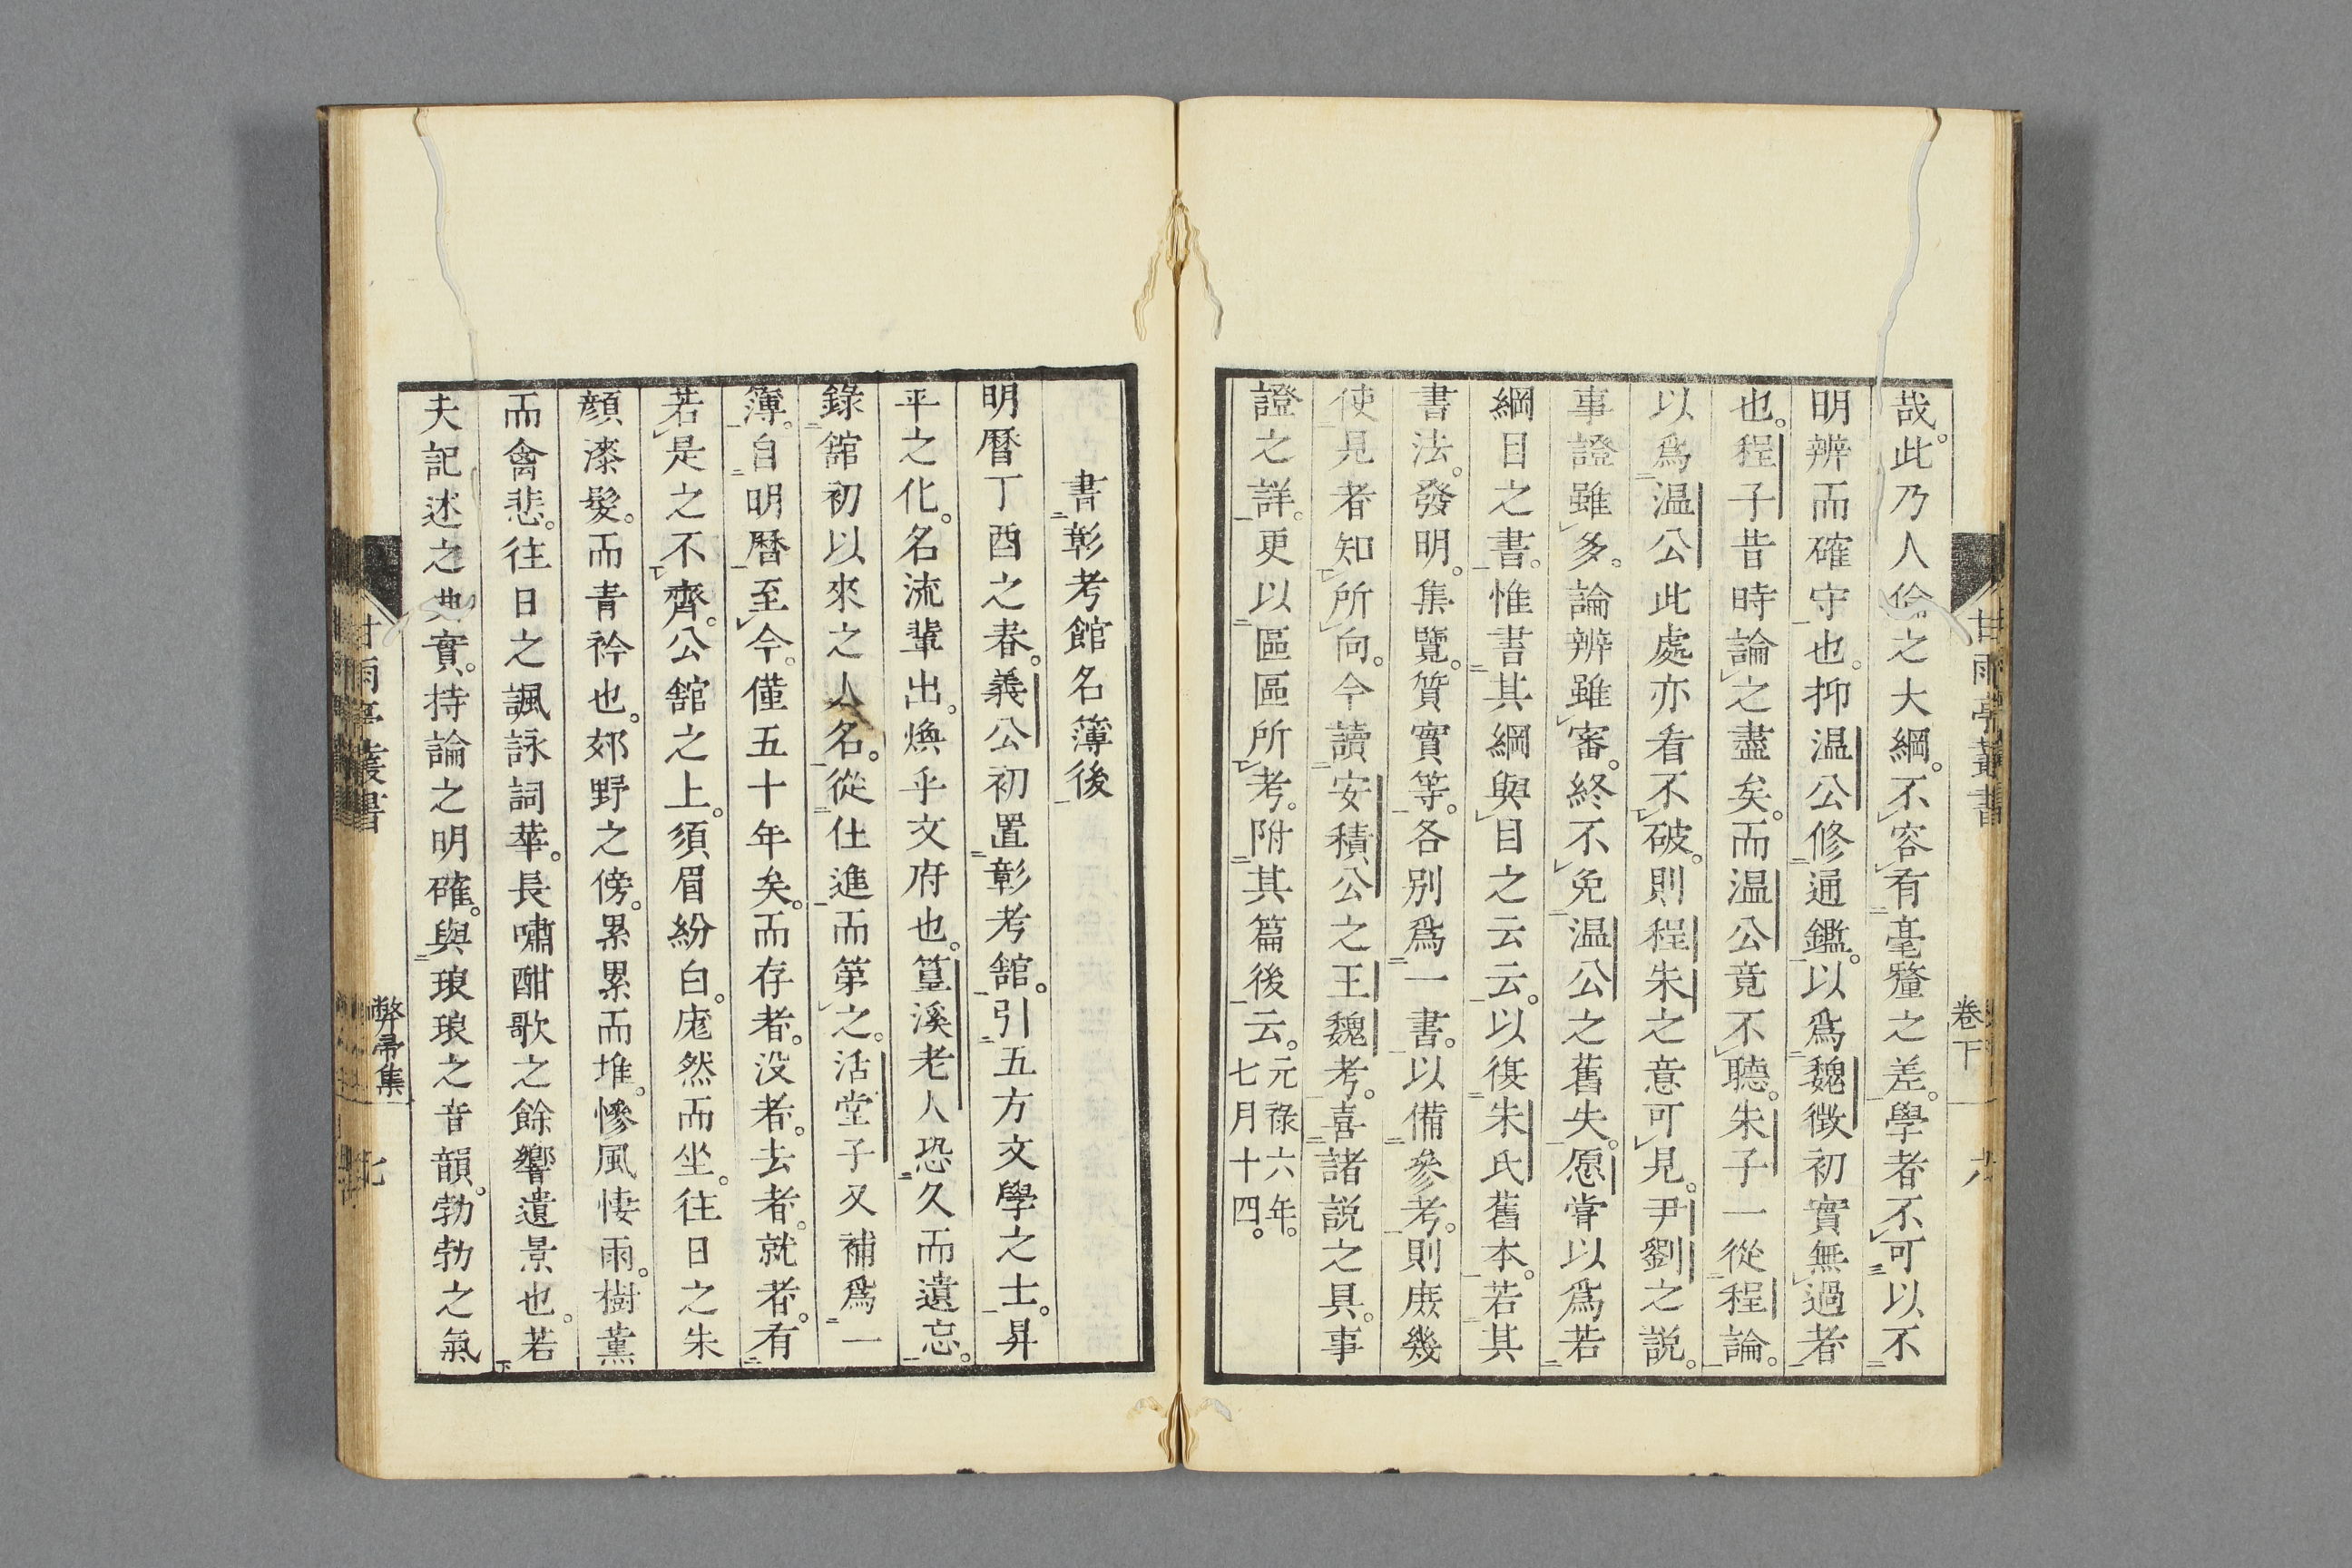 哉。此乃人倫之大綱。不容有毫釐之差。學者不可以不
明辨而確守也。抑温公修通鑑。以爲魏徴初實無過者
也。程子昔時論之盡矣。而温公竟不聽。朱子一從程論。
以爲温公此處亦看不破。則程朱之意可見。尹劉之説。
事證雖多。論辨雖審。終不免温公之舊失。愿嘗以爲若
綱目之書。惟書其綱與目之云云。以復朱氏舊本。若其
書法。發明。集覽。質實等。各別爲一書。以備參考。則庶幾
使見者知所向。今讀安積公之王魏考。喜諸説之具。事
證之詳。更以區區所考。附其篇後云。元祿六年。
七月十四。
甘雨亭叢書
卷下
書彰考館名簿後
明曆丁酉之春。義公初置彰考舘。引五方文學之士。昇
平之化。名流輩出。煥乎文府也。篁溪老人恐久而遺忘。
錄舘初以來之人名。從仕進而第之。活堂子又補爲一
簿。自明曆至今。僅五十年矣。而存者。没者。去者。就者。有
若是之不齊。公舘之上。須眉紛白。庬然而坐。往日之朱
顔漆髮。而青衿也。郊野之傍。累累而堆。慘風悽雨。樹薫
而禽悲。往日之諷詠詞華。長嘯酣歌之餘響遺景也。若
夫記述之典實。持論之明確。與琅琅之音韻。勃勃之氣
甘雨亭叢書
弊帚集